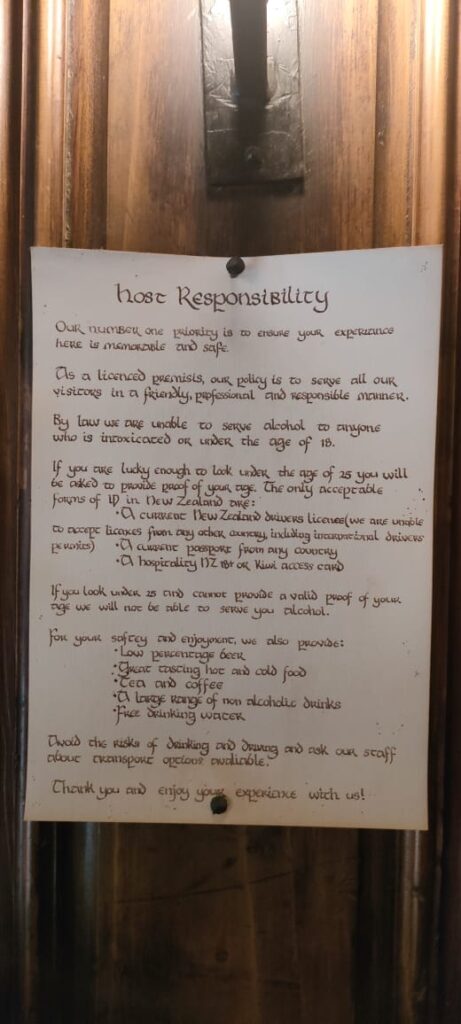 Host Responsibility
Our number one priority is to ensure your experiance
here is memorable and safe.
As a licenced premisis, our policy is to serve all our
visitors in a friendly, professional and responsible manner.
By law we are unable to serve alcohol to anyone
who is intoxicated or under the age of 18.
If you are lucky enough to look under the age of 25 you will
be asked to provide proof of your age. The only acceptable
forms of ID in New Zealand are:
•A current New Zealand drivers license(we are unable
to accept licences from any other country, including international drivers
permits) •A current passport from any country
•A hospitality NZ 18+ or Kiwi access card
If you look under 25 and cannot provide a valid proof of your
age we will not be able to serve you alcohol.
For your saftey and enjoyment, we also provide:
•Low percentage beer
•Great tasting hot and cold food
•Tea and coffee
•A large range of non alcoholic drinks
•Free drinking water
Avoid the risks of drinking and driving and ask our staff
about transport options avaliable.
Thank you and enjoy your experience with us!